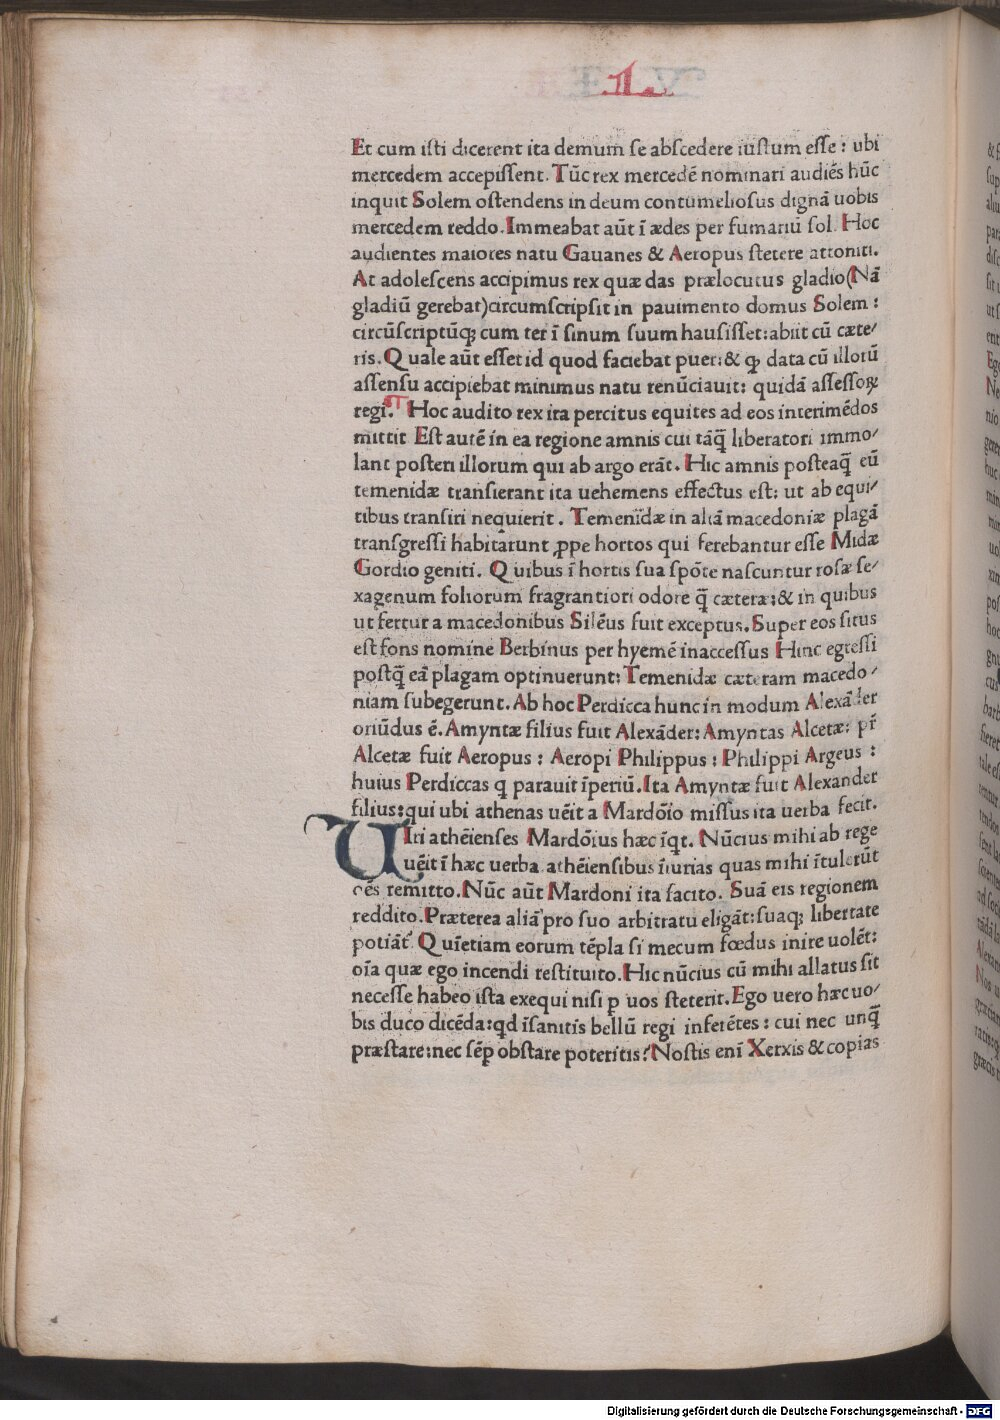 .L.
Et cum isti dicerent ita demum se abscedere iustum esse: ubi
mercedem accepissent. Tūc rex mercedē nominari audiēs hūc
inquit Solem ostendens in deum contumeliosus dignā uobis
mercedem reddo. Immeabat aūt ī ædes per fumariū sol. Hoc
audientes maiores natu Gauanes & Aeropus stetere attoniti.
At adolescens accipimus rex quæ das prælocutus gladio(Nā
gladiū gerebat)circumscripsit in pauimento domus Solem:
circūscriptūq; cum ter ī sinum suum hausisset: abiit cū cæte/
ris. Quale aūt esset id quod faciebat puer: & ꝙ data cū illorū
assensu accipiebat minimus natu renūciauit: quidā assessoꝝ
regi. Hoc audito rex ira percitus equites ad eos interimēdos
mittit Est autē in ea regione amnis cui tāq̄ liberatori immo/
lant posteri illorum qui ab argo erāt. Hic amnis posteaq̄ eū
temenidæ transierant ita uehemens effectus est: ut ab equi/
tibus transiri nequierit. Temenidæ in aliā macedoniæ plagā
transgressi habitarunt ꝓpe hortos qui ferebantur esse Midæ
Gordio geniti. Quibus ī hortis sua spōte nascuntur rosæ se/
xagenum foliorum fragrantiori odore q̄ cæteræ: & in quibus
ut fertur a macedonibus Silēus fuit exceptus. Super eos situs
est fons nomine Berbinus per hyemē inaccessus Hinc egressi
postq̄ eā plagam optinuerunt: Temenidæ cæteram macedo/
niam subegerunt. Ab hoc Perdicca hunc in modum Alexāder
oriūdus ē. Amyntæ filius fuit Alexāder: Amyntas Alcetæ: pr̄
Alcetæ fuit Aeropus: Aeropi Philippus: Philippi Argeus:
huius Perdiccas q parauit īperiū. Ita Amyntæ fuit Alexander
filius: qui ubi athenas uēit a Mardōio missus ita uerba fecit.
Uiri athēienses Mardōius hæc īqt. Nūcius mihi ab rege
uēit ī hæc uerba athēiensibus īiurias quas mihi ītulerūt
oēs remitto. Nūc aūt Mardoni ita facito. Suā eis regionem
reddito. Præterea aliā pro suo arbitratu eligāt: suaq; libertate
potiāt. Quīetiam eorum tēpla si mecum fœdus inire uolēt:
oīa quæ ego incendi restituito. Hic nūcius cū mihi allatus sit
necesse habeo ista exequi nisi p uos steterit. Ego uero hæc uo/
bis duco dicēda: qd īsanitis bellū regi inferētes: cui nec unq̄
præstare: nec sēꝑ obstare poteritis? Nostis enī Xerxis & copias
Digitalisierung gefördert durch die Deutsche Forschungsgemeinschaft - DFG